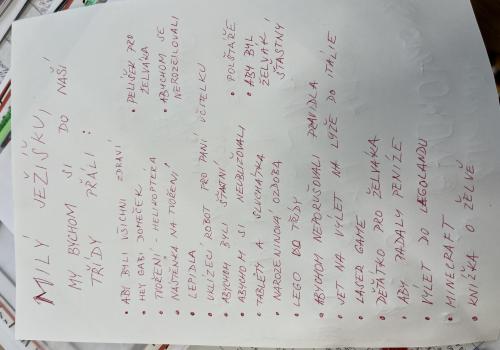 MILÝ JEŽÍŠKU,
MY BYCHOM SI DO NAŠÍ
TŘÍDY PŘÁLI:
• ABY BYLI VŠICHNI ZDRAVÍ
• HEY GABI DOMEČEK
• TVOŘENÍ - HELIKOPTERA
• NÁSTĚNKA NA TVOŘENÍ
• LEPIDLA
• UKLÍZECÍ ROBOT PRO PANÍ UČITELKU
• ABYCHOM BYLI ŠŤASTNÍ
• ABYCHOM SI NEUBLIŽOVALI
• TABLETY A SLUCHÁTKA
• NAROZENINOVÁ OZDOBA
• LEGO DO TŘÍDY
• ABYCHOM NEPORUŠOVALI PRAVIDLA
• JET NA VÝLET NA LYŽE DO ITÁLIE
• LASER GAME
• DĚŤÁTKO PRO ŽELVÁKA
• ABY PADALY PENÍZE
• VÝLET DO LEGOLANDU
• MINECRAFT
• KNIŽKA O ŽELVĚ
• PELÍŠEK PRO
ŽELVÁKA
• ABYCHOM SE
NEROZČILOVALI
• POLŠTÁŘE
• ABY BYL
ŽELVÁK
ŠŤASTNÝ